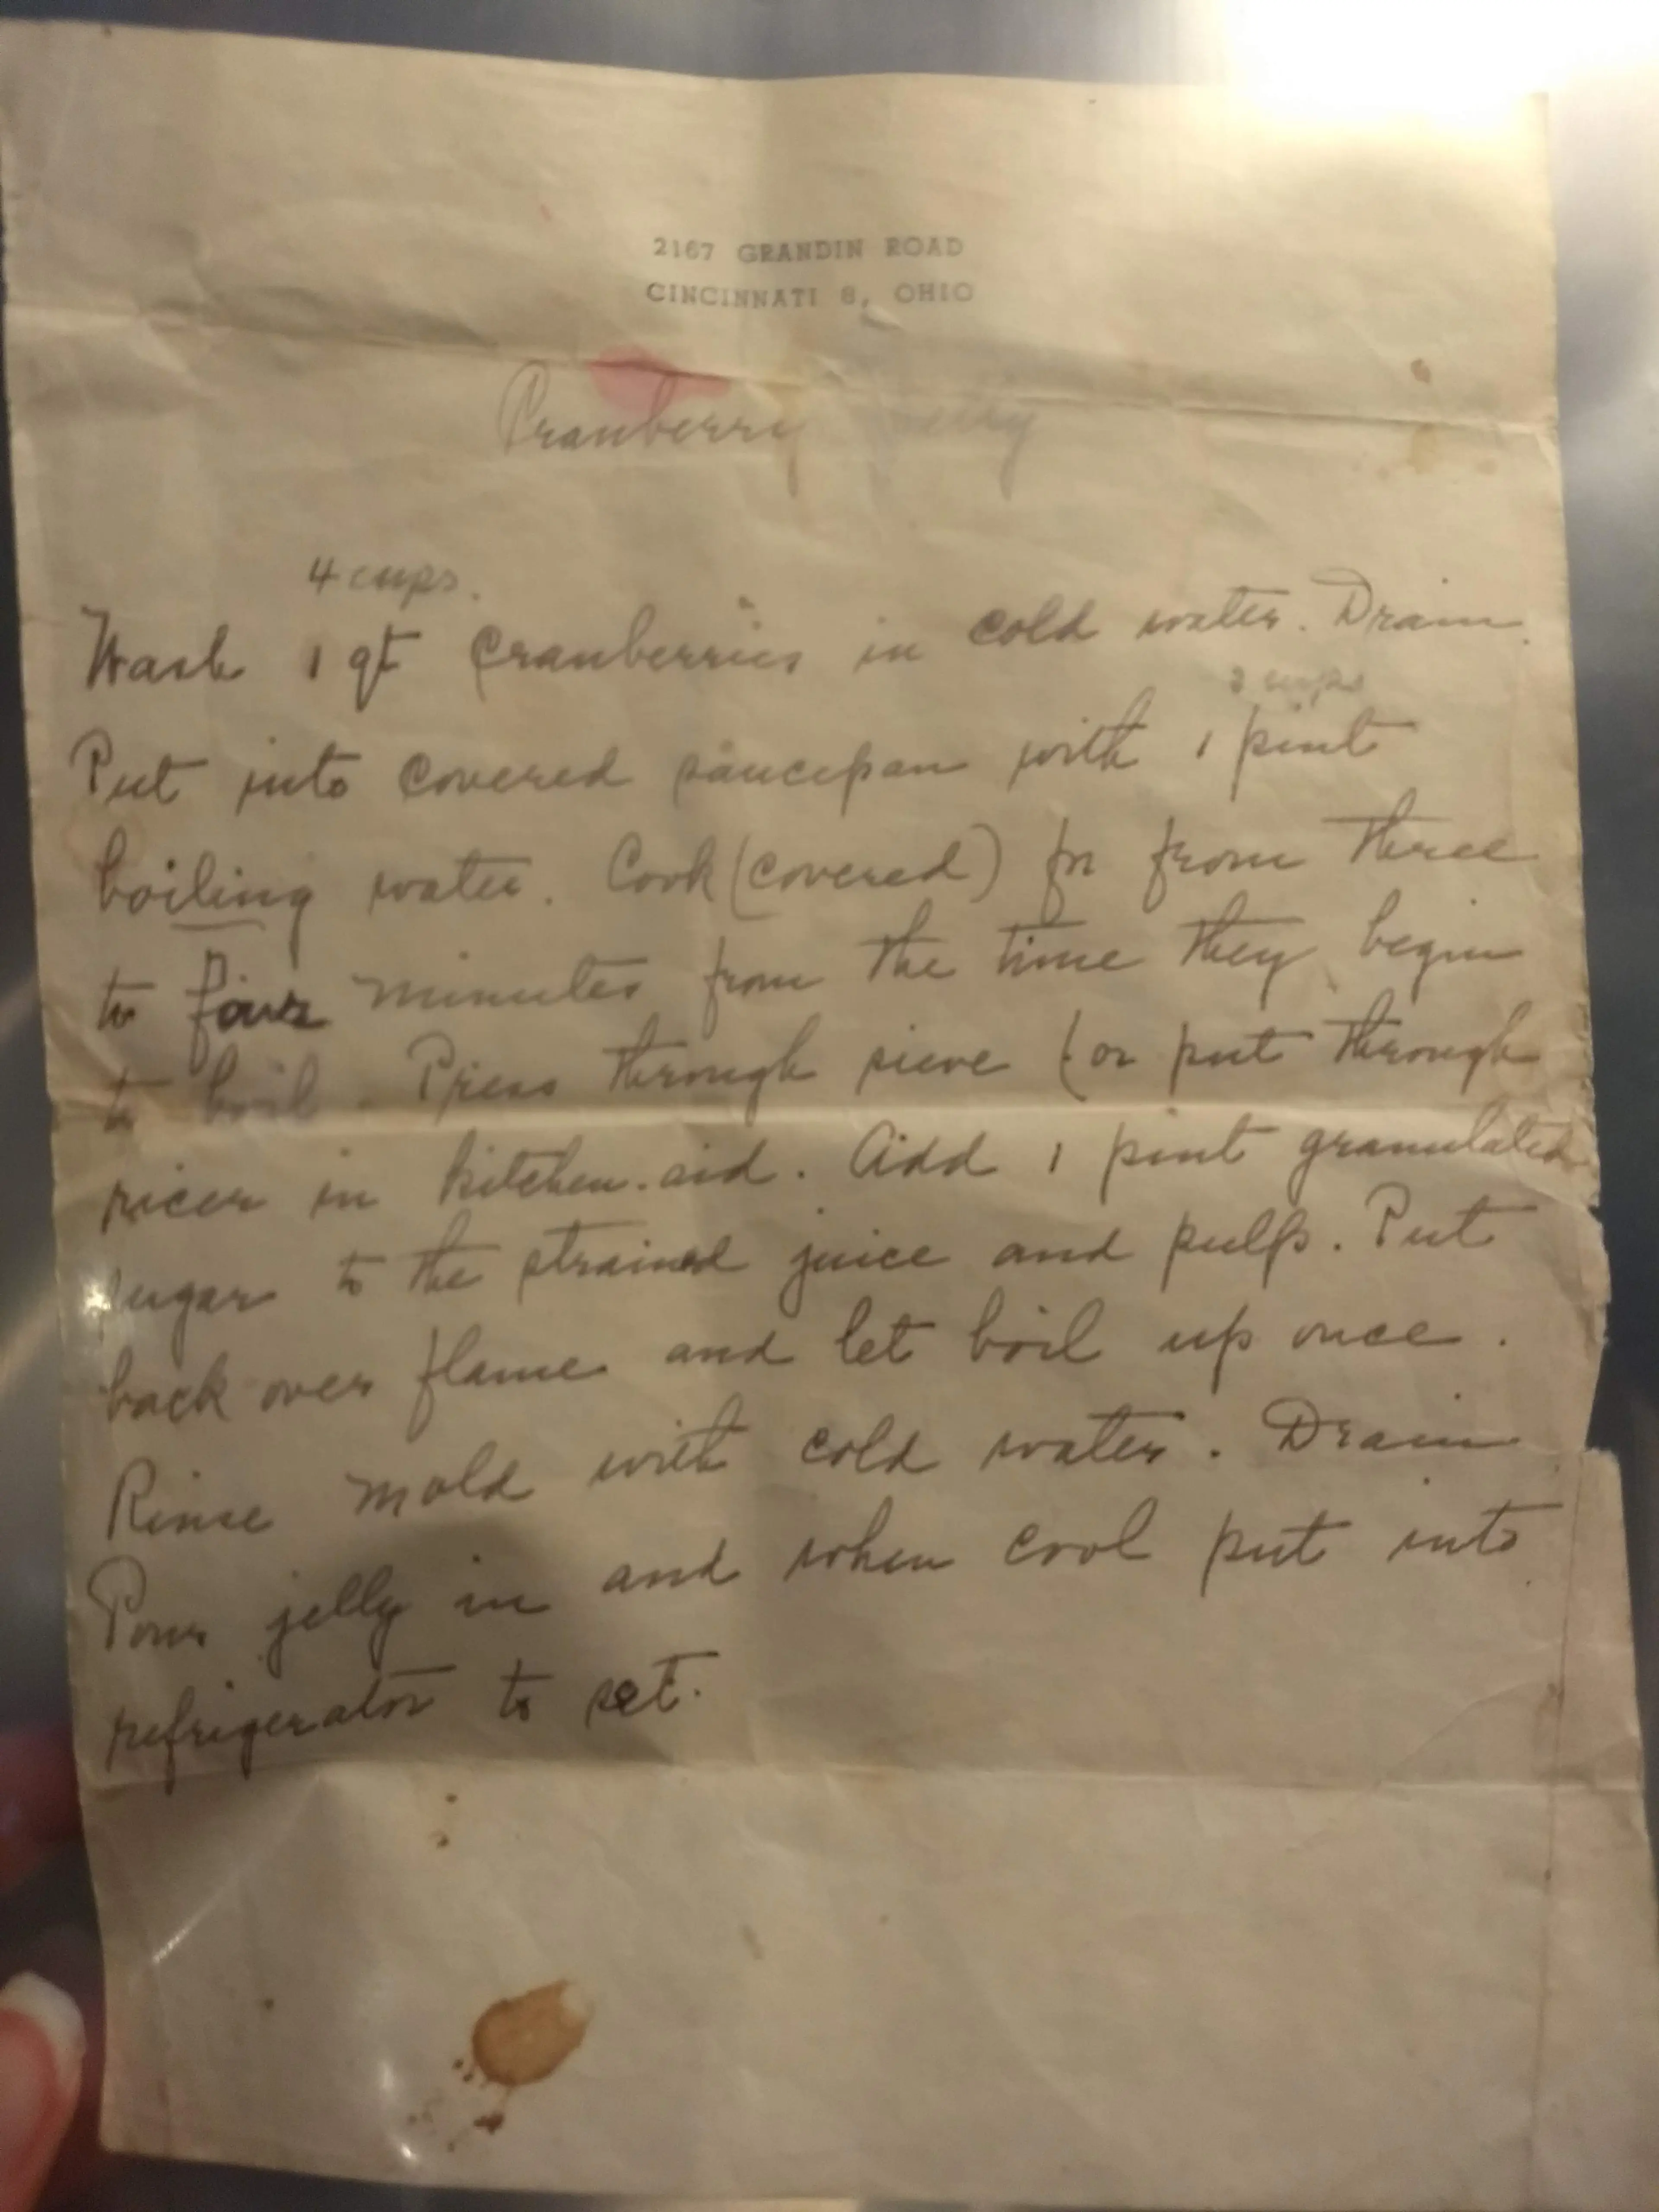 2167 GRANDIN ROAD
CINCINNATI 8, OHIO
Cranberry Jelly
4 cups.
Wash 1 qt Cranberries in cold water. Drain.
2 cups
Put into covered saucepan with 1 pint
boiling water. Cook (covered) for from three
to four minutes from the time they begin
to boil. Press through sieve (or put through
ricer in kitchen-aid. Add 1 pint granulated
sugar to the strained juice and pulp. Put
back over flame and let boil up once.
Rinse mold with cold water. Drain
Pour jelly in and when cool put into
refrigerator to set.